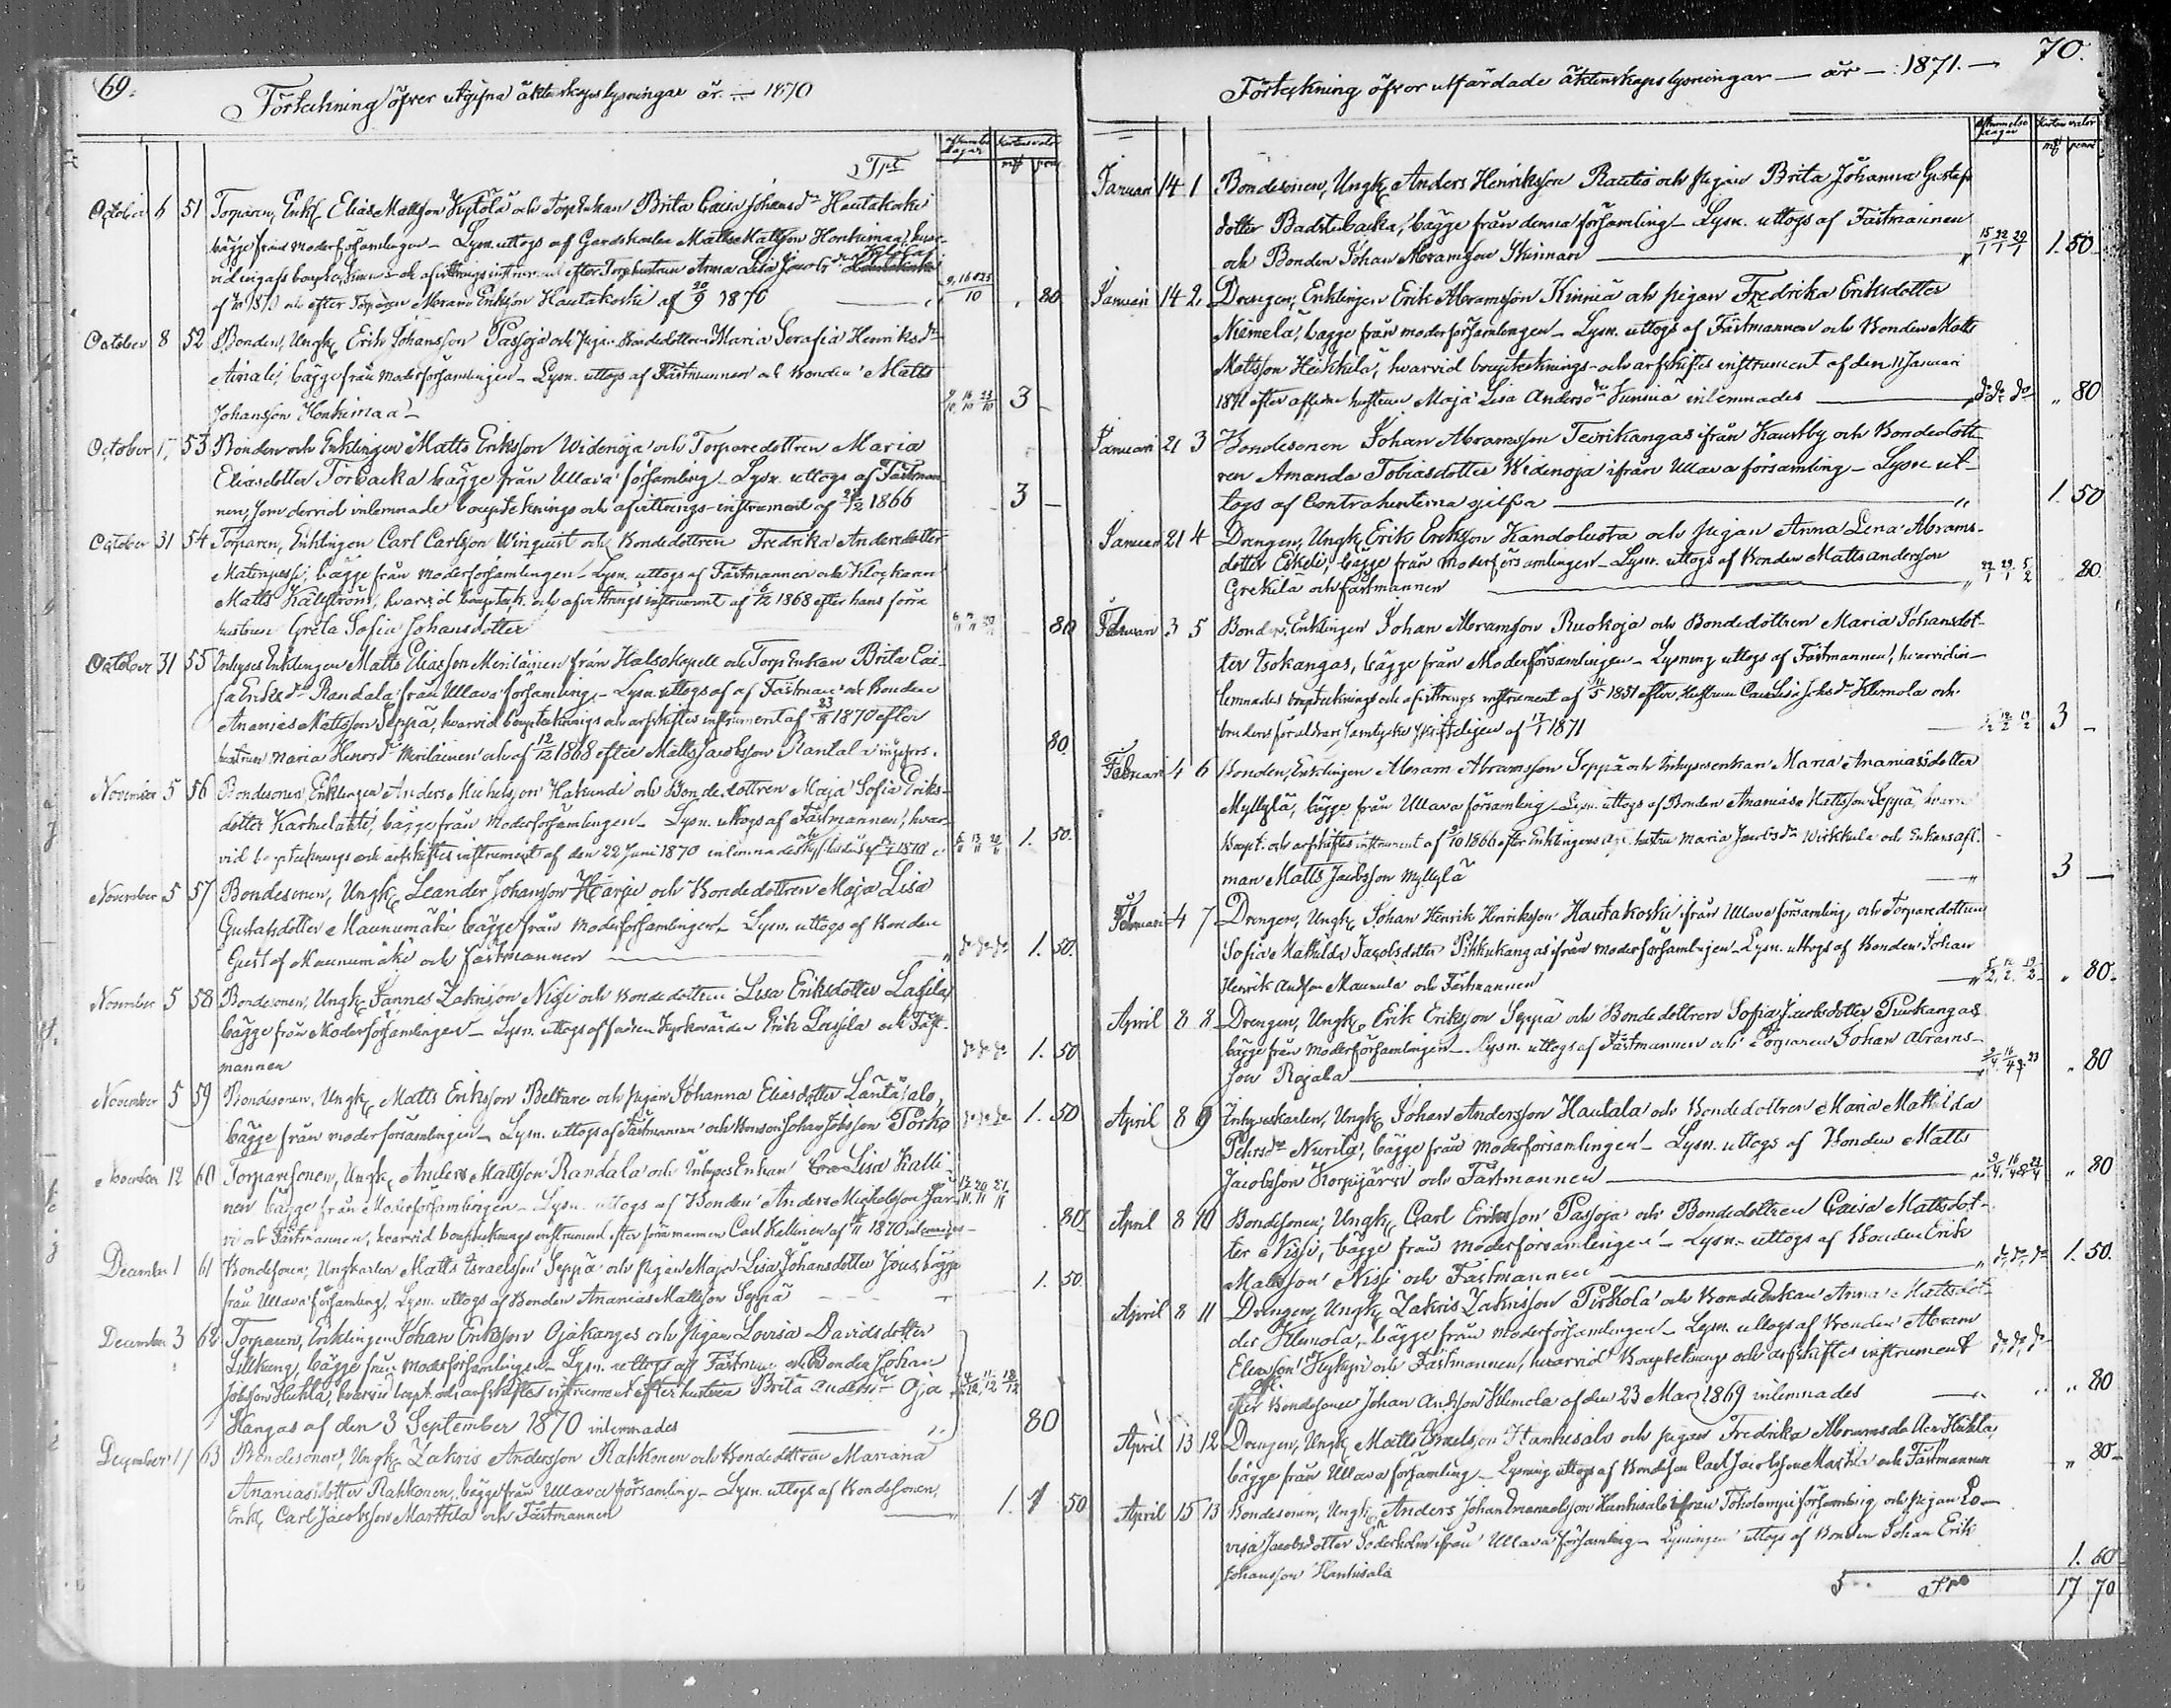 69.
Förteckning öfver utgifna äktenskapslysningar år 1870
Transp.
October 6 51 Torparen, Enkl. Elias Mattsson Kytölä och Torp Enkan Brita Caisa Johansdr Hautakoski
bägge från moderförsamlingen – Lysn. uttogs af Gårdskarlen Matts Mattsson Honkimaa, hvar-
vid ingafs boupteckn. och afvittringsinstrument efter Torphustrun Anna Lisa Jacobsdr
af 1870 och efter Torparen Abram Eriksson Hautakoski af 20/9 1870 " 80
October 8 52 Bonden, Ungk. Erik Johansson Passoja och Pigan Bondedottren Maria Serafia Henriksdr
Ainali, bägge från moderförsamlingen – Lysn. uttogs af Fästmannen och Bonden Matts
Johansson Honkimaa – 9/10 16/10 23/10 3 –
October 17 53 Bonden och Enklingen Matts Eriksson Widenoja och Torparedottren Maria
Eliasdotter Torbacka bägge från Ullava församling – Lysn. uttogs af Fästman-
nen, som dervid inlemnade bouptecknings och afvittrings-instrument af 1866 3 –
October 31 54 Torparen, Enklingen Carl Carlsson Winquist och Bondedottren Fredrika Andersdotter
Matinpessi, bägge från moderförsamlingen – Lysn. uttogs af Fästmannen och Klockaren
Matts Källström, hvarvid bouptek. och afvittrings instrument af 1868 efter hans förra
hustrun Greta Sofia Johansdotter 80
October 31 55 Inhyses Enklingen Matts Eliasson Meriläinen från Halso Kapell och Torp Enkan Brita Cai-
sa Eriksdr Randala från Ullava församling – Lysn. uttogs af af Fästman och Bonden
Ananias Mattsson Seppä, hvarvid bouptecknings och arfskiftes instrument af 23/8 1870 efter
hustrun Maria Henrsdr Meriläinen och af 12/12 1868 efter Matts Jacobsson Rantala 80.
November 5 56 Bondesonen, Enklingen Anders Michelsson Hakunde och Bondedottren Maja Sofia Eriks-
dotter Karhulahti, bägge från moderförsamlingen – Lysn. uttogs af Fästmannen, hvar-
vid bouptecknings och arfskiftes instrument af den 22 Juni 1870 inlemnades 6/11 13/11 20/11 1. 50.
November 5 57 Bondesonen, Ungk. Leander Johansson Härje och Bondedottren Maja Lisa
Gustafsdotter Maunumäki bägge från moderförsamlingen – Lysn. uttogs af Bonden
Gustaf Maunumäki och Fästmannen " do do do 1. 50.
November 5 58 Bondesonen, Ungk. Jannes Zakrisson Nissi och Bondedottren Lisa Eriksdotter Lassila,
bägge från Moderförsamlingen – Lysn. uttogs af fadren Kyrkovärden Erik Lassila och Fäst-
mannen do do do 1. 50
November 5 59 Bondesonen, Ungk. Matts Eriksson Beltare och pigan Johanna Eliasdotter Läntäsalo,
bägge från moderförsamlingen – Lysn. uttogs af Fästmannen och Bonson Johan Jobsson Torko do do do 1. 50
November 12 60 Torparesonen, Ungk. Anders Mattsson Randala och Inhyses Enkan Lisa Kalli-
nen bägge från Moderförsamlingen – Lysn. uttogs af Bonden Anders Michelsson Jär-
vi och Fästmannen, hvarvid bouptecknings instrument efter förra mannen Carl Kallinen af 1870 inlemnades – 80
December 1 61 Bondesonen, Ungkarlen Matts Israelsson Seppä och pigan Maja Lisa Johansdotter Jous, bägge
från Ullava församling, Lysn. uttogs af Bonden Ananias Mattsson Seppä 1. 50
December 3 62 Torparen, Enklingen Johan Eriksson Ojakangas och Pigan Lovisa Davidsdotter
Lillkung, bägge från moderförsamlingen – Lysn. uttogs af Fästman och Bonden Johan
Jobsson Huhta, hvarvid boupt. och arfskiftes instrument efter hustrun Brita Andersdr Oja 4/12 11/12 18/12
kangas af den 3 September 1870 inlemnades " 80
December 17 63 Bondesonen, Ungk. Zakris Andersson Rahkonen och Bondedottren Mariana
Ananiasdotter Rahkonen, bägge från Ullava församling – Lysn. uttogs af Bondesonen,
Enkl. Carl Jacobsson Marttila och Fästmannen 1. 50
70.
Förteckning öfver utfärdade äktenskaps lysningar – år – 1871. –
Januari 14 1 Bondesonen, Ungk. Anders Henriksson Rautio och pigan Brita Johanna Gustafs
dotter Badstubacka, bägge från denna församling – Lysn. uttogs af Fästmannen
och Bonden Johan Abramsson Kinnari " 15/1 22/1 29/1 1. 50
Januari 14 2. Drengen, Enklingen Erik Abramsson Kinnia och pigan Fredrika Eriksdotter
Niemelä, bägge från moderförsamlingen – Lysn. uttogs af Fästmannen och Bonden Matts
Mattsson Heikkilä, hvarvid bouptecknings- och arfskiftes instrument af den 11 Januari
1871 efter aflidne hustrun Maja Lisa Andersdr inlemnades do do do " 80
Januari 21 3 Bondesonen Johan Abramsson Teirikangas ifrån Kaustby och Bondedott-
ren Amanda Tobiasdotter Widenoja ifrån Ullava församling – Lysn. ut-
togs af Contrahenterna sjelfva " 1. 50
Januari 21 4 Drengen, Ungk. Erik Eriksson Kandoluota och pigan Anna Lena Abrams-
dotter Eskeli, bägge från moderförsamlingen – Lysn. uttogs af Bonden Matts andersson
Grekilä och fästmannen " 22/1 29/1 5/2 80.
Februari 3 5 Bonden, Enklingen Johan Abramsson Ruokoja och Bondedottren Maria Johansdot-
ter Isokangas, bägge från Moderförsamlingen – Lysning uttogs af Fästmannen, hvarvid in-
lemnades bouptecknings och afvittrings instrument af 11/5 1851 efter Hustrun Caisa Lisa Johsdr Klemola och
brudens föräldrars samtycke skrifteligen af 1871 3 –
Februari 4 6 Bonden, Enklingen Abram Abramsson Seppä och Inhysesenkan Maria Ananiasdotter
Myllylä, bägge från Ullava församling – Lysn. uttogs af Bonden Ananias Mattsson Seppä, hvarv.
boupt. och arfskiftes instrument af 1866 efter Enklingens hustru Maria Jacobsdr Wirkkala och Enkans afl.
man Matts Jacobsson Myllylä " 3 –
Februari 4 7 Drengen, Ungk. Johan Henrik Henriksson Hautakoski ifrån Ullava församling och Torparedottren
Sofia Mathilda Jacobsdotter Pihkukangas ifrån moderförsamlingen – Lysn. uttogs af Bonden Johan
Henrik Andsson Maunula och Fästmannen " 5/2 12/2 19/2 " 80.
April 8 8 Drengen, Ungk. Erik Eriksson Seppä och Bondedottren Sofia Jacobsdotter Puukangas
bägge från moderförsamlingen – Lysn. uttogs af Fästmannen och Torparen Johan Abrams-
son Rajala " 80
April 8 9 Inhyseskarlen, Ungk. Johan Andersson Hautala och Bondedottren Maria Mathilda
Pehrsdr Nurila, bägge från moderförsamlingen – Lysn. uttogs af Bonden Matts
Jacobsson Korpijärvi och Fästmannen " 80
April 8 10 Bondesonen, Ungk. Carl Eriksson Passoja och Bondedottren Caisa Mattsdot-
ter Nissi, bägge från moderförsamlingen – Lysn. uttogs af Bonden Erik
Mattsson Nissi och Fästmannen " do do do 1. 50.
April 8 11 Drengen, Ungk. Zakris Zakrisson Pirkola och Bonde Enkan Anna Mattsdot-
der Klemola, bägge från moderförsamlingen – Lysn. uttogs af Bonden Abram
Eliasson Kykyri och Fästmannen, hvarvid Bouptecknings och arfskiftes instrument do do do
efter Bondesonen Johan Andsson Klemola af den 23 Mars 1869 inlemnades " 80
April 13 12 Drengen, Ungk. Matts Israelsson Hanhisalo och pigan Fredrika Abramsdr Huhta,
bägge från Ullava församling – Lysning uttogs af Bondeson Carl Jacobsson Marttila och Fästmannen " 80 –
April 15 13 Bondesonen, Ungk. Anders Johan Emanuelsson Hanhisalo ifrån Toholampi församling och pigan Lo-
visa Jacobsdotter Söderholm ifrån Ullava församling – Lysningen uttogs af Bonden Johan Erik
Johansson Hanhisalo 1. 60
17 70